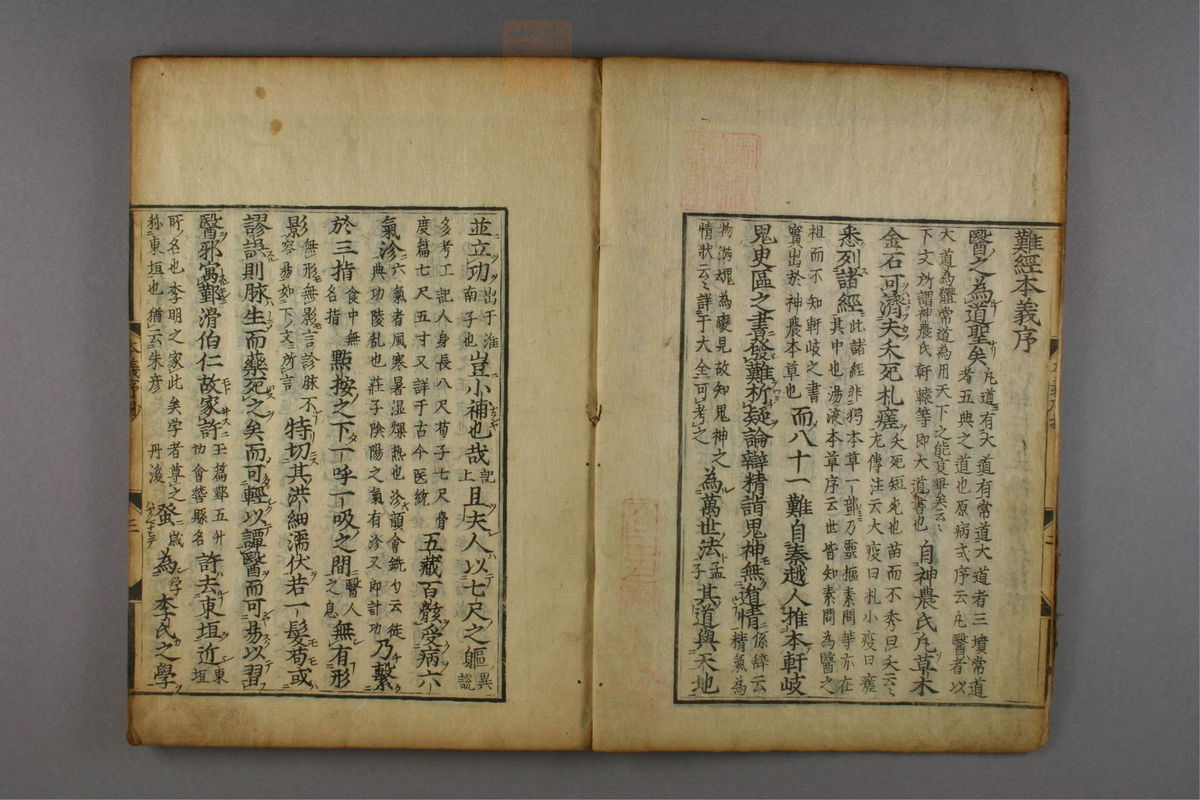 難經本義序
醫之為道聖矣 凡道有大道有常道大道者三墳常道者五典之道也原病式序云凡醫者以
大道為體常道為用天下之能事畢矣云云下文所謂神農氏軒轅等即大道書也 自神農氏凡草木
金石可濟夫夭死札瘥 夭死短死也苗而不秀曰夭云云左傳注云大疫曰札小疫曰瘥
悉列諸經 此諸經非獨本草一部乃靈樞素問等亦在其中也湯液本草序云世皆知素問為醫之
祖而不知軒岐之書實出於神農本草也 而八十一難自秦越人推本軒岐
鬼臾區之書發難析疑論辯精詣鬼神無遁情 係辞云精氣為
物游魂為變是故知鬼神之情狀云云詳于大全可考之 為萬世法 孟子 其道與天地
並立功 出于淮南子也 豈小補也哉 記上 且夫人以七尺之軀 異說
多考工記人身長八尺荀子七尺骨度篇七尺五寸又詳于古今医統 五藏百骸受病六
氣沴 六氣者風寒暑湿燥熱也沴韻會銑勻云徒典功陵乱也莊子陰陽之氣有沴又郎計功 乃繫
於三指 食中無名指 點按之下一呼一吸之間 醫人之息 無有形
影 無形無影言診脉不容易如下文所言 特切其洪細濡伏若一髮苟或
謬誤則脉生而藥死之矣而可輕以譚醫而可易以習
醫邪寓鄞滑伯仁故家許 玉篇鄭五外切會嵇縣名 許去東垣近 東垣
所名也李明之家此矣学者尊之称東垣也猶云朱彦 丹溪 蚤 歳 為 学 李氏之學